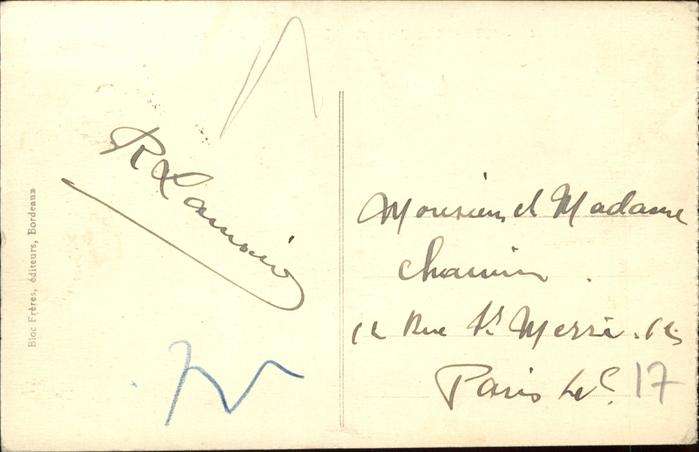 Bloc Frères, éditeurs, Bordeaux
R Lamisio
Monsieur et Madame
Chamin
12 Rue St Merri
Paris 4e. 17